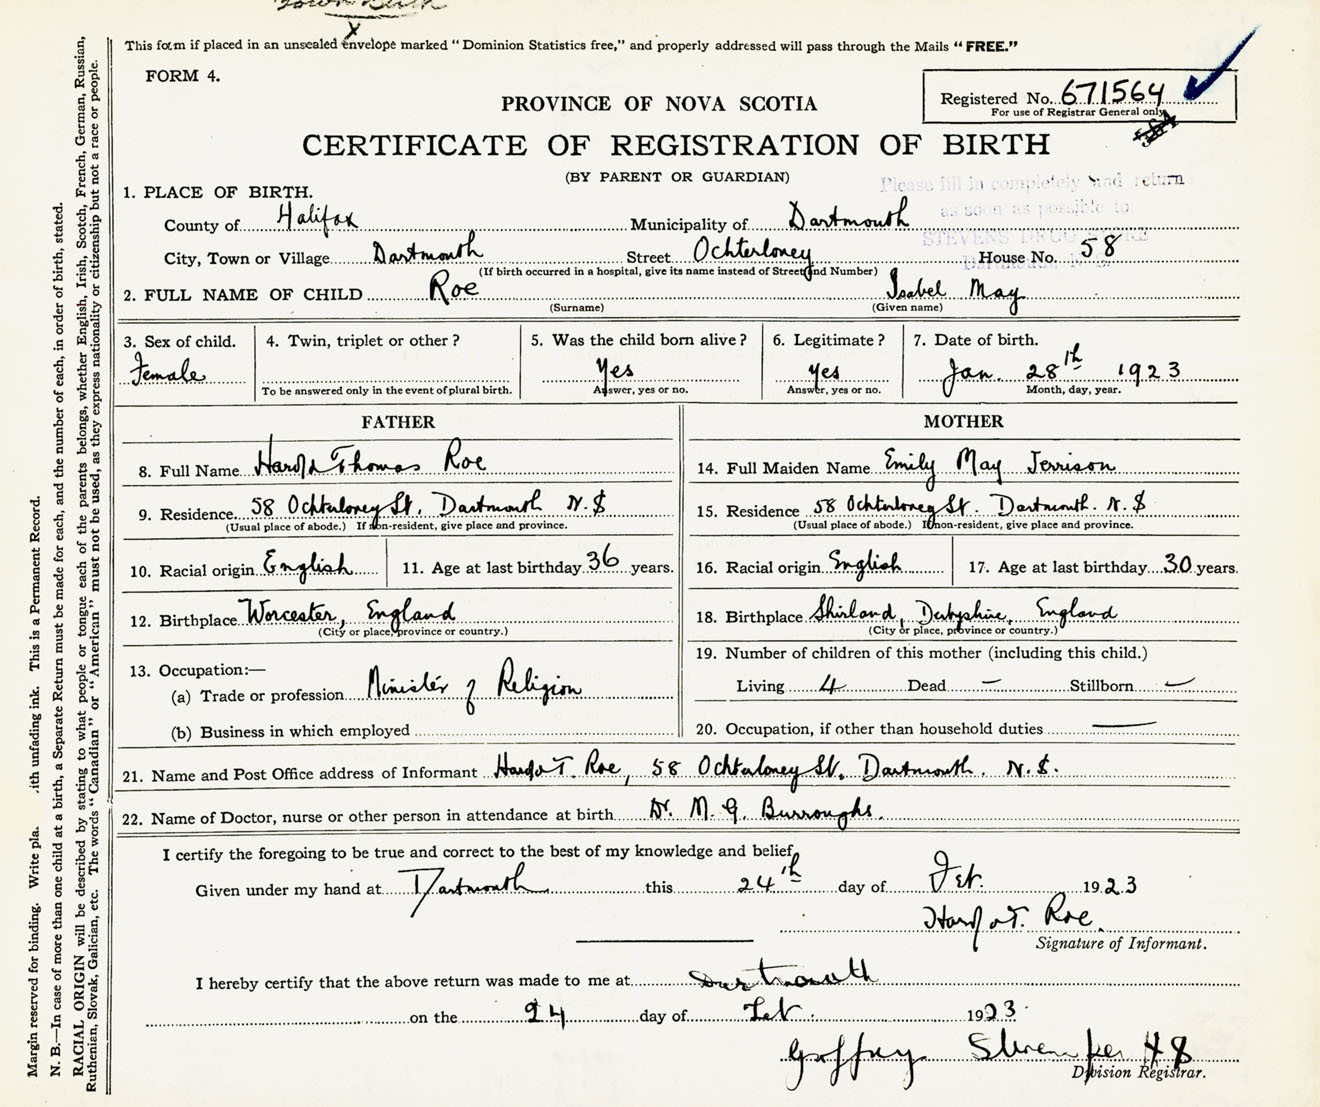 Town Birth
X
This form if placed in an unsealed envelope marked "Dominion Statistics free," and properly addressed will pass through the Mails "FREE."
FORM 4.
Registered No. 671564
For use of Registrar General only
564
PROVINCE OF NOVA SCOTIA
CERTIFICATE OF REGISTRATION OF BIRTH
(BY PARENT OR GUARDIAN)
Please fill in completely and return
as soon as possible to
STEVENS DRUG STORE
Dartmouth, N. S.
1. PLACE OF BIRTH.
County of Halifax Municipality of Dartmouth
City, Town or Village Dartmouth Street Ochterloney House No. 58
(If birth occurred in a hospital, give its name instead of Street and Number)
2. FULL NAME OF CHILD Roe Isabel May
(Surname) (Given name)
3. Sex of child. 4. Twin, triplet or other? 5. Was the child born alive? 6. Legitimate? 7. Date of birth.
Female Yes yes Jan. 28th 1923
To be answered only in the event of plural birth. Answer, yes or no. Answer, yes or no. Month, day, year.
FATHER MOTHER
8. Full Name Harold Thomas Roe 14. Full Maiden Name Emily May Jerrison
9. Residence 58 Ochterloney St. Dartmouth N.S 15. Residence 58 Ochterloney St. Dartmouth. N.S
(Usual place of abode.) If non-resident, give place and province. (Usual place of abode.) If non-resident, give place and province.
10. Racial origin English 11. Age at last birthday 36 years. 16. Racial origin English 17. Age at last birthday 30 years.
12. Birthplace Worcester, England 18. Birthplace Shirland, Derbyshire, England
(City or place, province or country.) (City or place, province or country.)
13. Occupation:— 19. Number of children of this mother (including this child.)
(a) Trade or profession Minister of Religion Living 4 Dead — Stillborn —
(b) Business in which employed 20. Occupation, if other than household duties —
21. Name and Post Office address of Informant Harold T. Roe, 58 Ochterloney St. Dartmouth. N.S.
22. Name of Doctor, nurse or other person in attendance at birth Dr. M. G. Burroughs.
I certify the foregoing to be true and correct to the best of my knowledge and belief,
Given under my hand at Dartmouth this 24th day of Feb. 1923
Harold T. Roe.
Signature of Informant.
I hereby certify that the above return was made to me at Dartmouth
on the 24 day of Feb. 1923
Division Registrar.
Margin reserved for binding. Write pla ith unfading ink. This is a Permanent Record.
N. B.—In case of more than one child at a birth, a Separate Return must be made for each, and the number of each, in order of birth, stated.
RACIAL ORIGIN will be described by stating to what people or tongue each of the parents belongs, whether English, Irish, Scotch, French, German, Russian,
Ruthenian, Slovak, Galician, etc. The words "Canadian" or "American" must not be used, as they express nationality or citizenship but not a race or people.